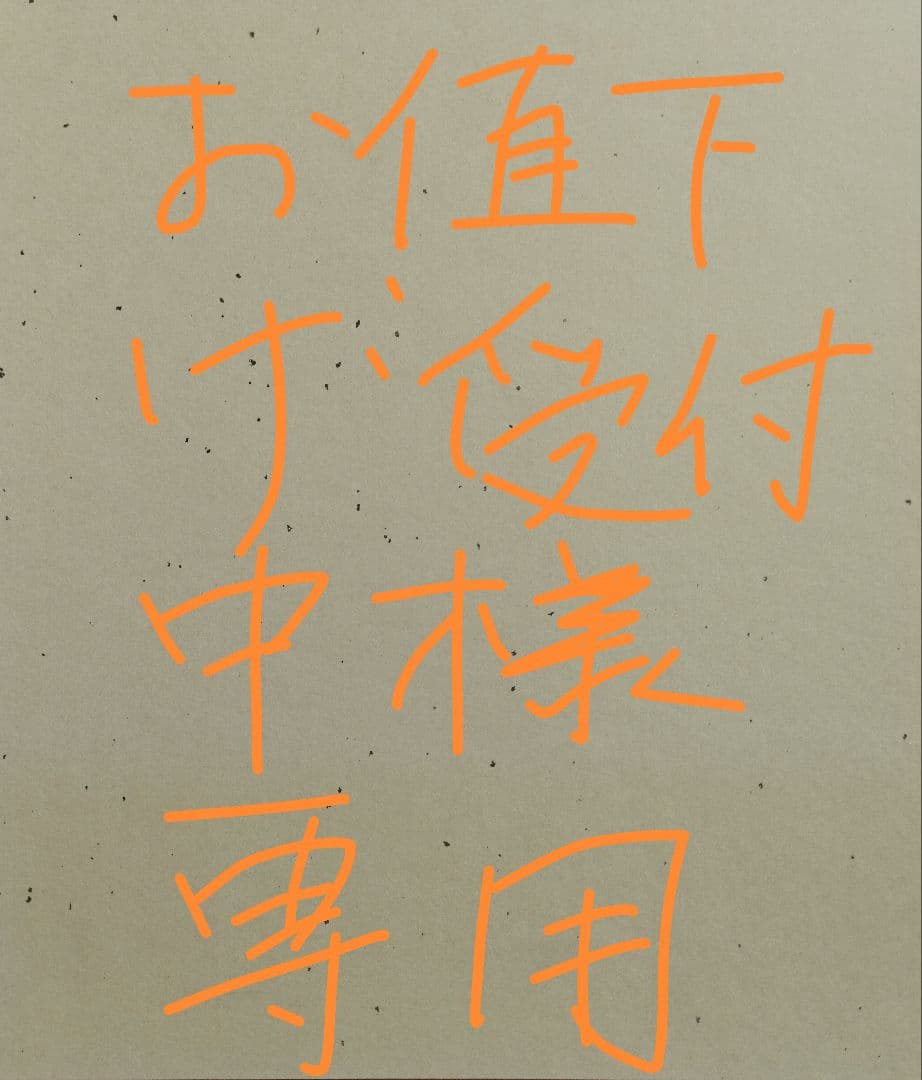 お値下
げ受付
中様
専用